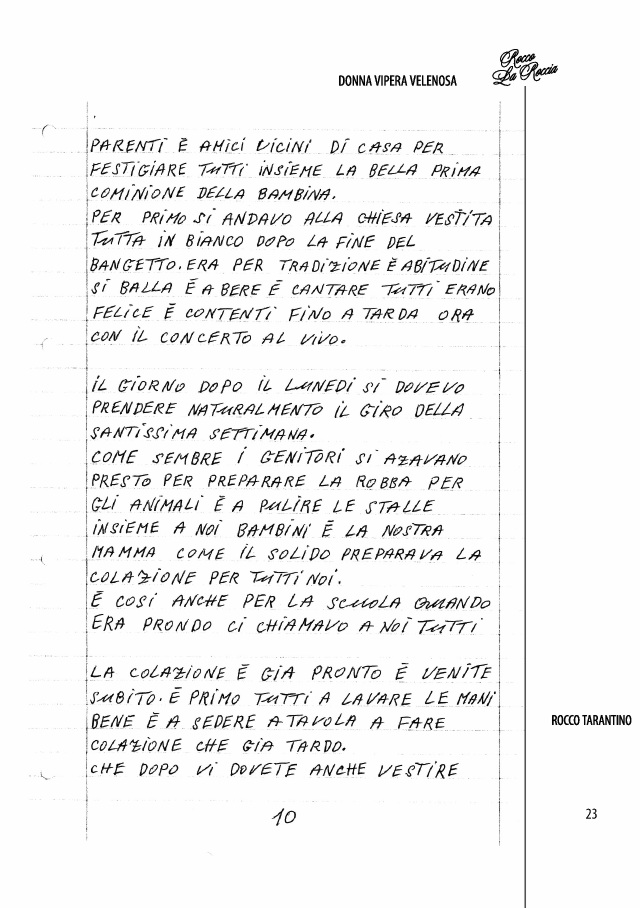 Rocco
La Roccia
DONNA VIPERA VELENOSA
PARENTI È AMICI VICINI DI CASA PER
FESTIGIARE TUTTI INSIEME LA BELLA PRIMA
COMINIONE DELLA BAMBINA.
PER PRIMO SI ANDAVO ALLA CHIESA VESTITA
TUTTA IN BIANCO DOPO LA FINE DEL
BANGETTO. ERA PER TRADIZIONE È ABITUDINE
SI BALLA È A BERE È CANTARE TUTTI ERANO
FELICE È CONTENTI FINO A TARDA ORA
CON IL CONCERTO AL VIVO.
IL GIORNO DOPO IL LUNEDI SI DOVEVO
PRENDERE NATURALMENTO IL GIRO DELLA
SANTISSIMA SETTIMANA.
COME SEMBRE I GENITORI SI AZAVANO
PRESTO PER PREPARARE LA ROBBA PER
GLI ANIMALI È A PULIRE LE STALLE
INSIEME A NOI BAMBINI È LA NOSTRA
MAMMA COME IL SOLIDO PREPARAVA LA
COLAZIONE PER TUTTI NOI.
È COSI ANCHE PER LA SCUOLA QUANDO
ERA PRONDO CI CHIAMAVO A NOI TUTTI
LA COLAZIONE È GIA PRONTO È VENITE
SUBITO. È PRIMO TUTTI A LAVARE LE MANI
BENE È A SEDERE A TAVOLA A FARE
COLAZIONE CHE GIA TARDO.
CHE DOPO VI DOVETE ANCHE VESTIRE
10
ROCCO TARANTINO
23